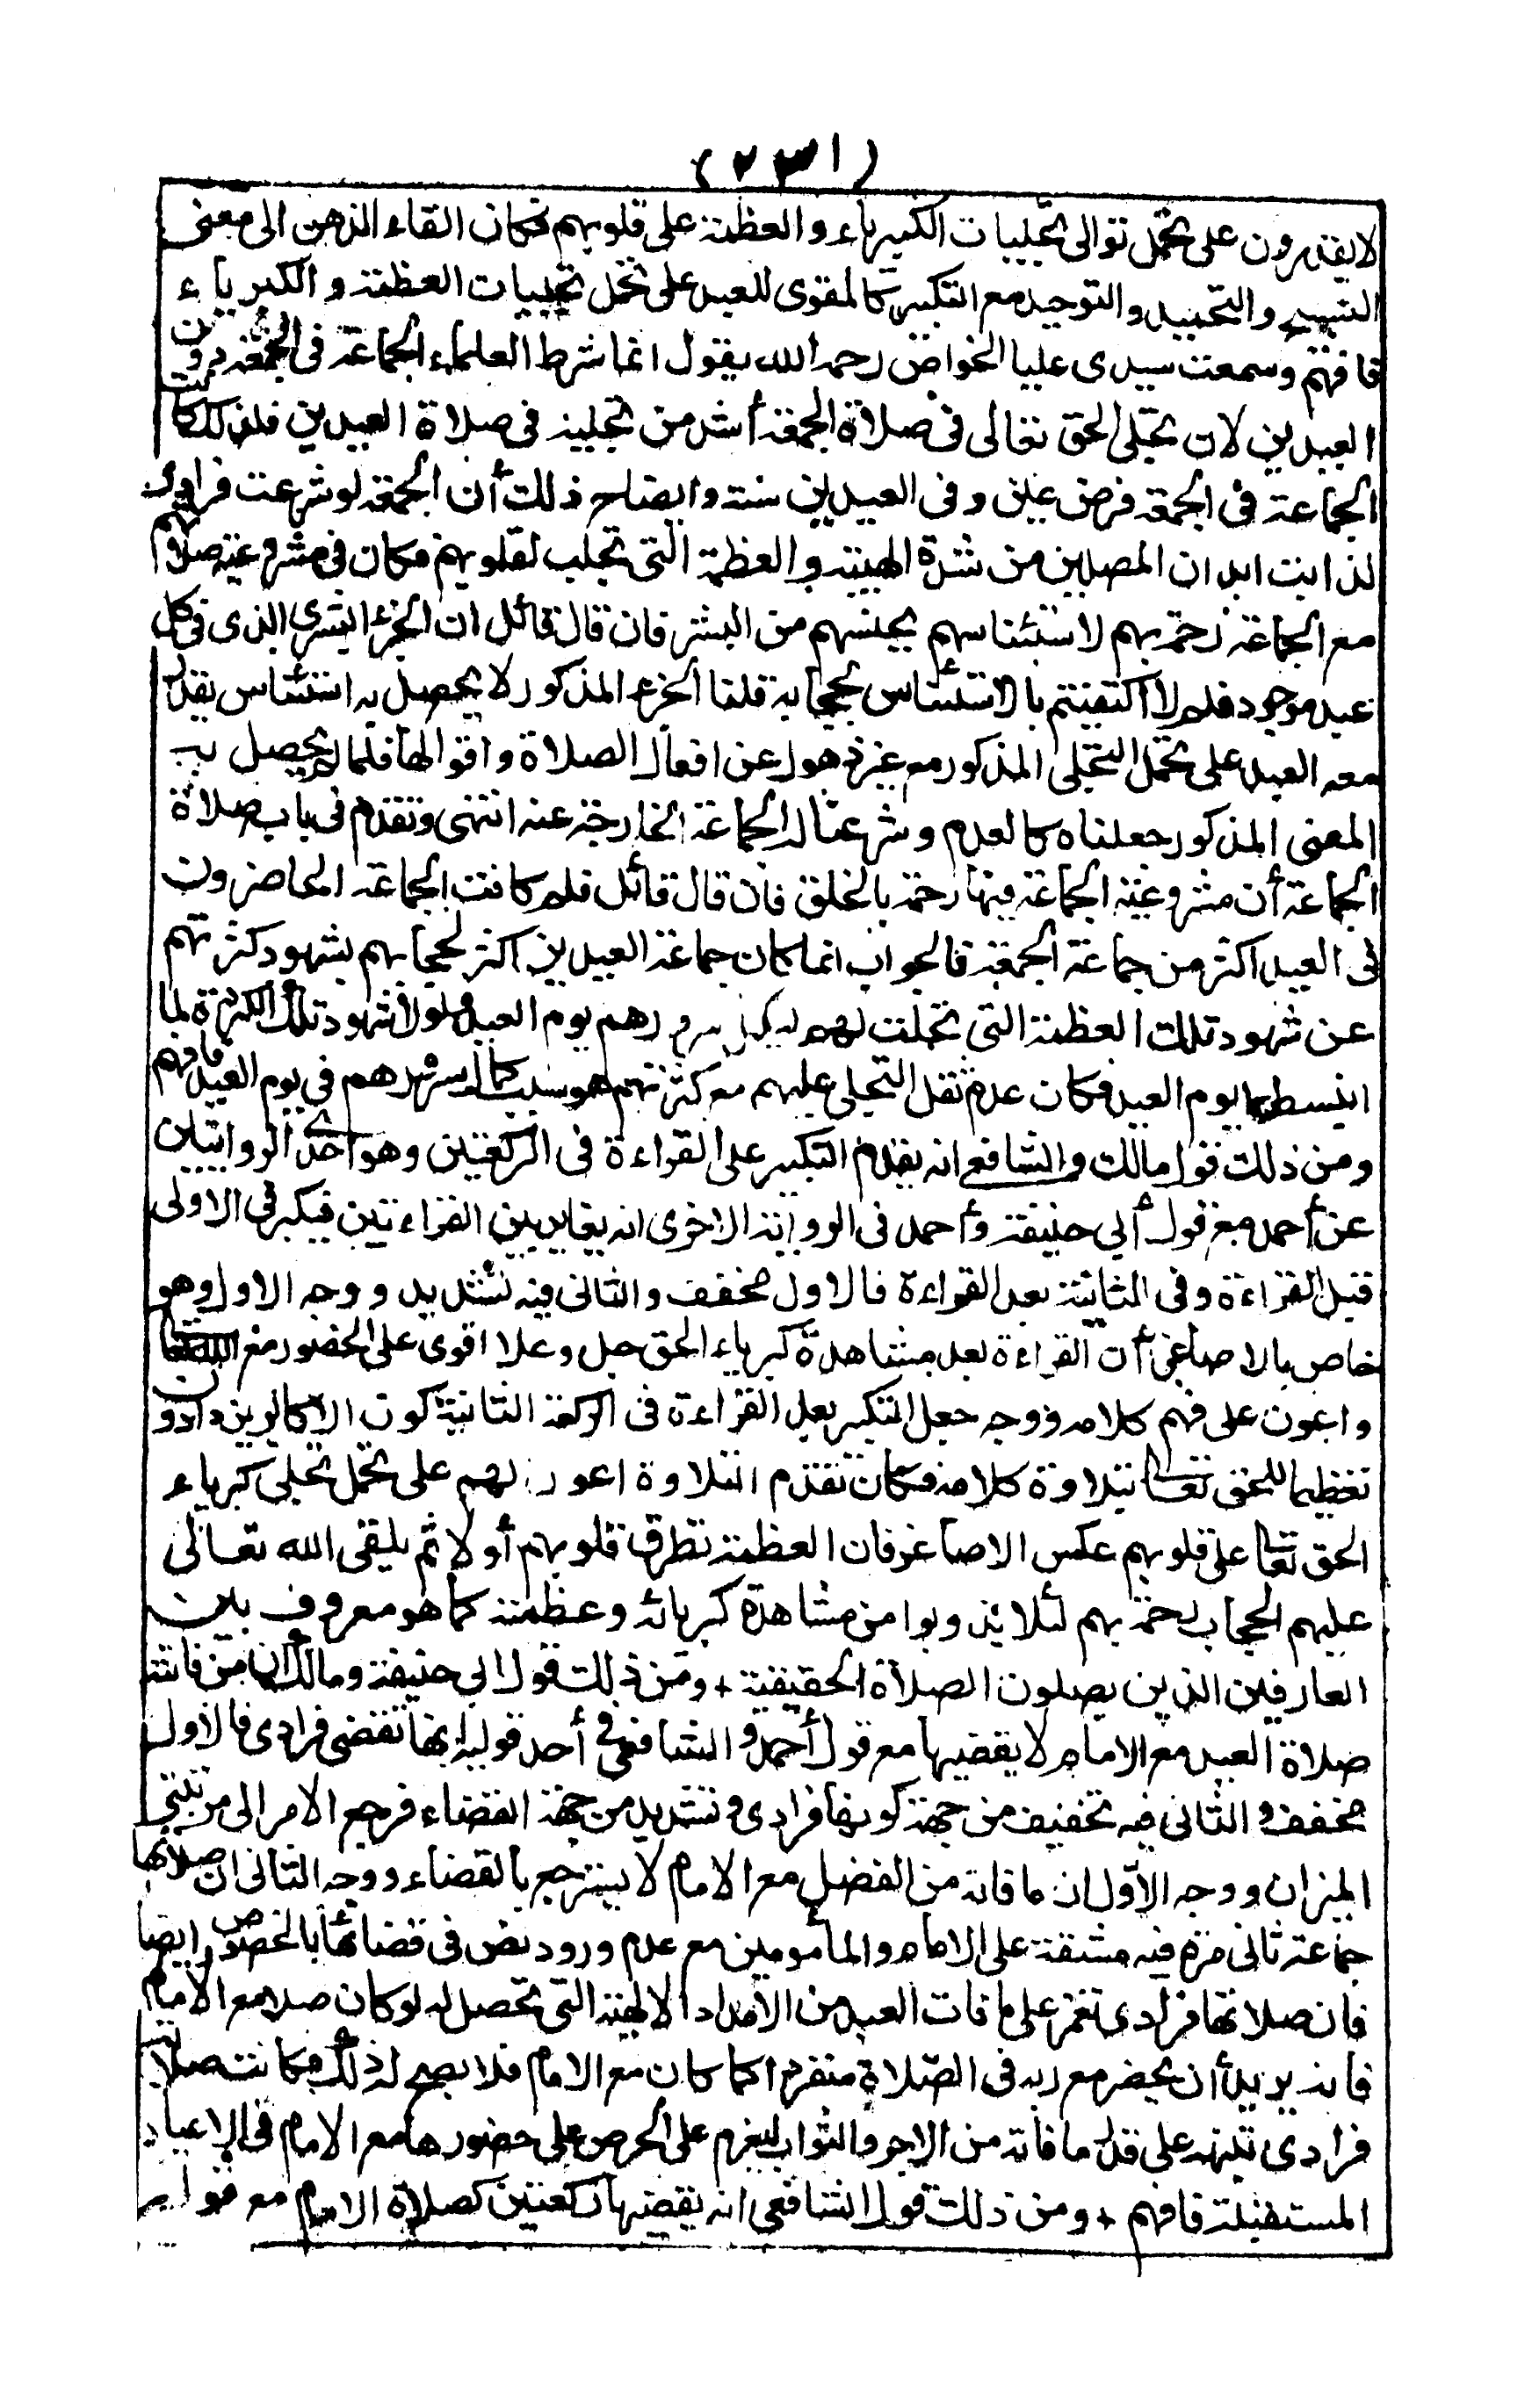 (٢٣١)
لا يقدرون على تحمل توالى تجليات الكبرياء والعظمة على قلوبهم فكان القاء الذهن الى معنى
التسبيح والتحميد والتوحيد مع التكبير كالمقوى للعبد على تحمل تجليات العظمة والكبرياء
فافهم وسمعت سيدى عليا الخواص رحمه الله يقول انما شرط العلماء الجماعة فى الجمعة دون
العيدين لان تجلى الحق تعالى فى صلاة الجمعة أشد من تجليه فى صلاة العيدين فلذلك كانت
الجماعة فى الجمعة فرض عين وفى العيدين سنة وايضاح ذلك أن الجمعة لو شرعت فرادى
لذابت ابدان المصلين من شدة الهيبة والعظمة التى تجلت لقلوبهم فكان فى مشروعية صلاتهم
مع الجماعة رحمة بهم لاستئناسهم بجنسهم من البشر فان قال قائل ان الجزء البشرى الذى فى كل
عبد موجود فلم لا اكتفيتم بالاستئناس بحجابه قلنا الجزء المذكور لا يحصل به استئناس يقدر
معه العبد على تحمل التجلى المذكور مع عزه هول عن افعال الصلاة واقوالها فلما لم يحصل به
المعنى المذكور جعلناه كالعدم وشرعنا له الجماعة الخارجة عنه انتهى وتقدم فى باب صلاة
الجماعة أن مشروعية الجماعة فيها رحمة بالخلق فان قال قائل فلم كانت الجماعة الحاضرون
فى العيد اكثر من جماعة الجمعة فالجواب انما كان جماعة العيدين اكثر لحجابهم بشهود كثرتهم
عن شهود تلك العظمة التى تجلت لهم ليكمل سرورهم يوم العيد ولولا شهود تلك الكثرة لما
انبسطوا يوم العيد فكان عدم ثقل التجلى عليهم مع كثرتهم هو سبب كمال سرورهم فى يوم العيد فافهم
ومن ذلك قول مالك والشافعى انه يقدم التكبير على القراءة فى الركعتين وهو احدى الروايتين
عن أحمد مع قول أبى حنيفة وأحمد فى الرواية الاخرى انه يغاير بين القراءتين فيكبر فى الاولى
قبل القراءة وفى الثانية بعد القراءة فالاول مخفف والثانى فيه تشديد ووجه الاول وهو
خاص بالاصاغر أن القراءة بعد مشاهدة كبرياء الحق جل وعلا اقوى على الحضور مع الله تعالى
واعون على فهم كلامه ووجه جعل التكبير بعد القراءة فى الركعة الثانية كون الاكابر يزدادون
تعظيما للحق تعالى بتلاوة كلامه فكان تقدم التلاوة اعون لهم على تحمل تجلى كبرياء
الحق تعالى على قلوبهم عكس الاصاغر فان العظمة تطرق قلوبهم أولا ثم يلقى الله تعالى
عليهم الحجاب رحمة بهم لئلا يذوبوا من مشاهدة كبريائه وعظمته كما هو معروف بين
العارفين الذين يصلون الصلاة الحقيقية + ومن ذلك قول ابى حنيفة ومالك ان من فاتته
صلاة العيد مع الامام لا يقضيها مع قول أحمد والشافعى فى أحد قوليه انها تقضى فرادى فالاول
مخفف والثانى فيه تخفيف من جهة كونها فرادى وتشديد من جهة القضاء فرجع الامر الى مرتبتى
الميزان ووجه الاول ان ما فاته من الفضل مع الامام لا يسترجع بالقضاء ووجه الثانى ان صلاتها
جماعة ثانى مرة فيه مشقة على الامام والمأمومين مع عدم ورود نص فى قضائها بالخصوص وايضا
فان صلاتها فرادى تغمز على ما فات العبد من الامداد الالهية التى تحصل له لو كان صلا مع الامام
فانه يريد أن يحضر مع ربه فى الصلاة منفردا كما كان مع الامام فلا يصح له ذلك فكانت صلاته
فرادى تنبهه على قدر ما فاته من الاجر والثواب ليعزم على الحرص على حضورها مع الامام فى الاعياد
المستقبلة فافهم + ومن ذلك قول الشافعى انه يقضيها ركعتين كصلاة الامام مع قول